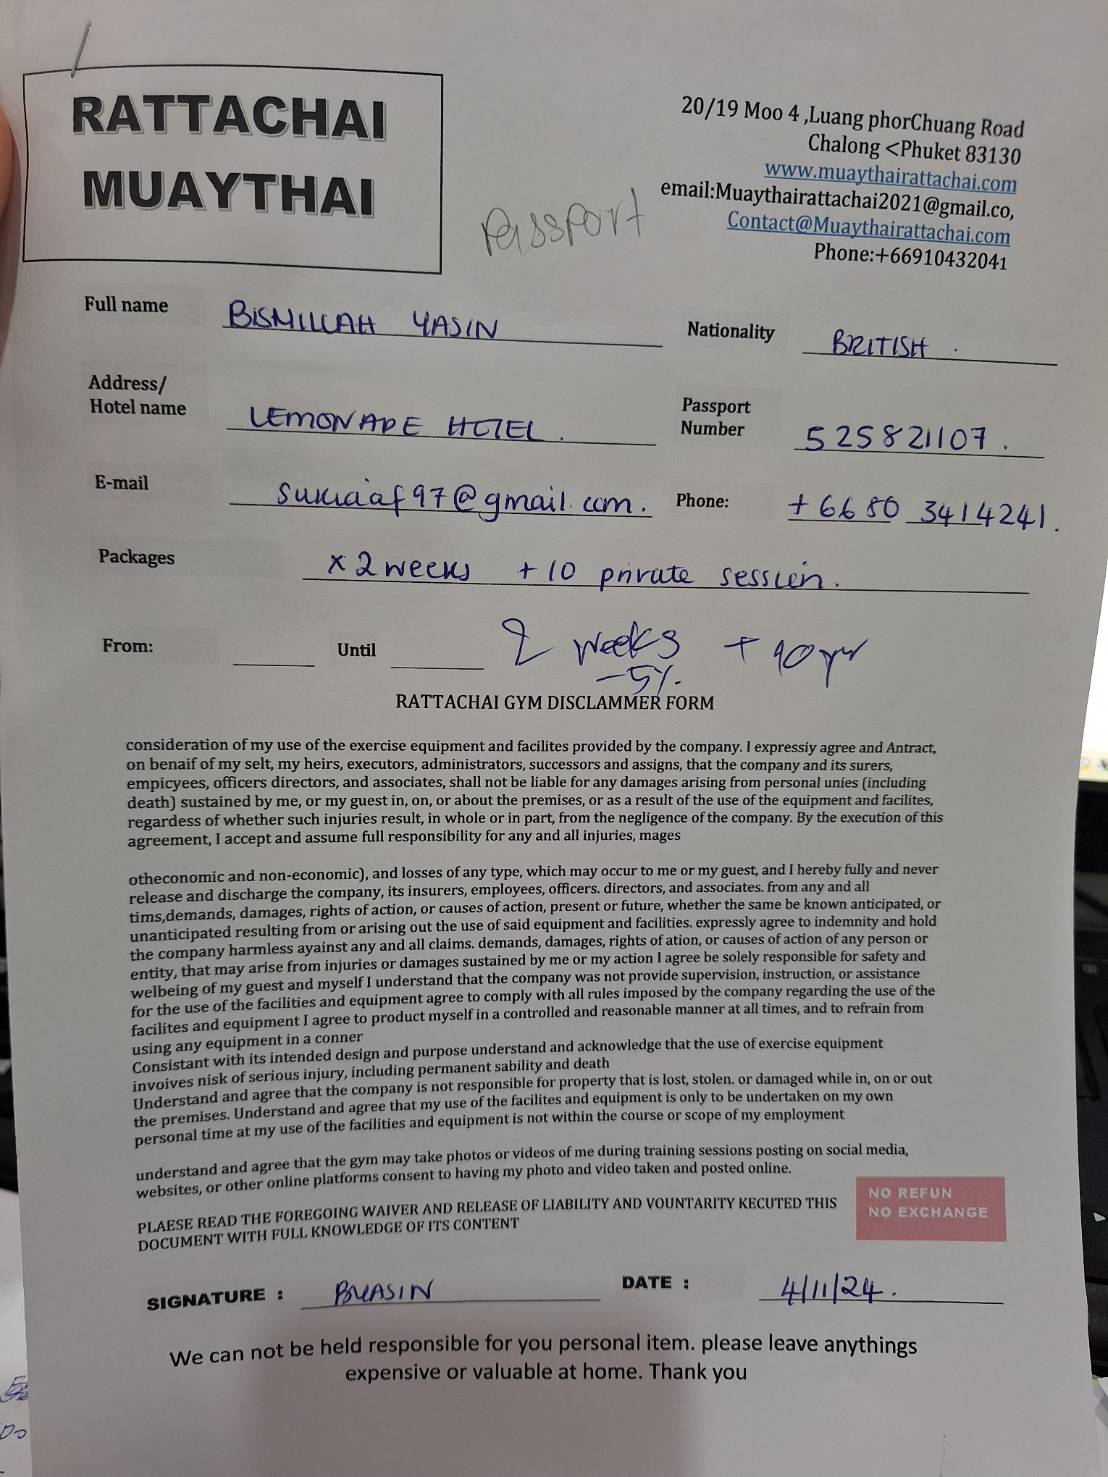 RATTACHAI
MUAYTHAI
20/19 Moo 4 ,Luang phorChuang Road
Chalong <Phuket 83130
www.muaythairattachai.com
email:Muaythairattachai2021@gmail.co,
Contact@Muaythairattachai.com
Phone:+66910432041
Passport
Full name BISMILLAH YASIN
Nationality BRITISH.
Address/
Hotel name LEMONADE HOTEL.
Passport
Number 525821107.
E-mail
Phone: +6680 3414241.
Packages x 2 weeks + 10 private session.
From: Until 2 weeks + 10 pr
-5%.
RATTACHAI GYM DISCLAMMER FORM
consideration of my use of the exercise equipment and facilites provided by the company. I expressiy agree and Antract,
on benaif of my selt, my heirs, executors, administrators, successors and assigns, that the company and its surers,
empicyees, officers directors, and associates, shall not be liable for any damages arising from personal unies (including
death) sustained by me, or my guest in, on, or about the premises, or as a result of the use of the equipment and facilites,
regardess of whether such injuries result, in whole or in part, from the negligence of the company. By the execution of this
agreement, I accept and assume full responsibility for any and all injuries, mages
otheconomic and non-economic), and losses of any type, which may occur to me or my guest, and I hereby fully and never
release and discharge the company, its insurers, employees, officers. directors, and associates. from any and all
tims,demands, damages, rights of action, or causes of action, present or future, whether the same be known anticipated, or
unanticipated resulting from or arising out the use of said equipment and facilities. expressly agree to indemnity and hold
the company harmless ayainst any and all claims. demands, damages, rights of ation, or causes of action of any person or
entity, that may arise from injuries or damages sustained by me or my action I agree be solely responsible for safety and
welbeing of my guest and myself I understand that the company was not provide supervision, instruction, or assistance
for the use of the facilities and equipment agree to comply with all rules imposed by the company regarding the use of the
facilites and equipment I agree to product myself in a controlled and reasonable manner at all times, and to refrain from
using any equipment in a conner
Consistant with its intended design and purpose understand and acknowledge that the use of exercise equipment
invoives nisk of serious injury, including permanent sability and death
Understand and agree that the company is not responsible for property that is lost, stolen. or damaged while in, on or out
the premises. Understand and agree that my use of the facilites and equipment is only to be undertaken on my own
personal time at my use of the facilities and equipment is not within the course or scope of my employment
understand and agree that the gym may take photos or videos of me during training sessions posting on social media,
websites, or other online platforms consent to having my photo and video taken and posted online.
PLAESE READ THE FOREGOING WAIVER AND RELEASE OF LIABILITY AND VOUNTARITY KECUTED THIS
DOCUMENT WITH FULL KNOWLEDGE OF ITS CONTENT
NO REFUN
NO EXCHANGE
SIGNATURE : BYASIN
DATE : 4/11/24.
We can not be held responsible for you personal item. please leave anythings
expensive or valuable at home. Thank you